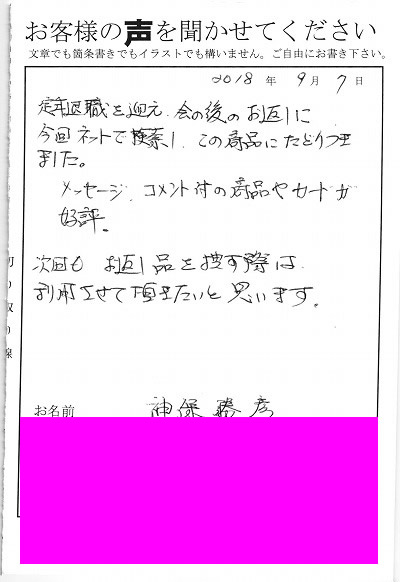 お客様の声を聞かせてください
文章でも箇条書きでもイラストでも構いません。ご自由にお書き下さい。
2018 年 9 月 7 日
定年退職を迎え、会の後のお返しに
今回ネットで検索し、この商品にたどりつき
ました。
メッセージ、コメント付の商品やカードが
好評。
次回も お返し品を捜す際は
利用させて頂きたいと思います。
切り取り線
お名前 神保勝彦